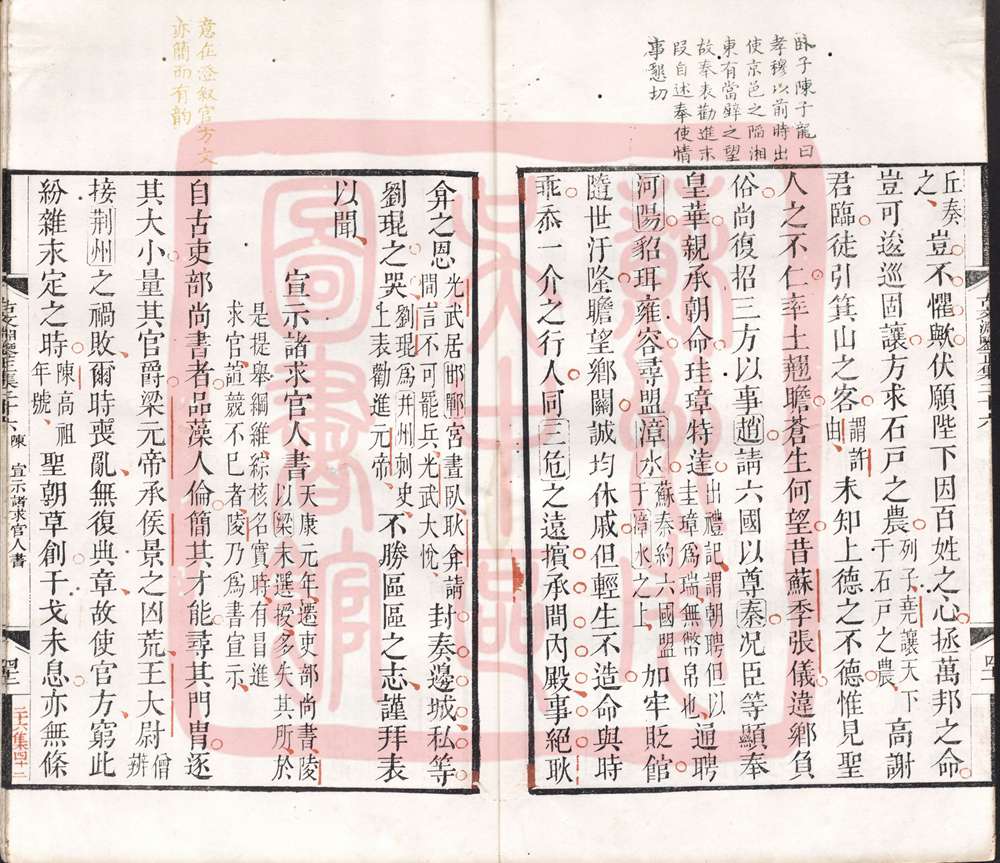 臥子陳子龍曰
孝穆以前時出
使京邑之陷湘
東有當璧之望
故奉表勸進末
段自述奉使情
事懇切
丘奏之豈不懼歟伏願陛下因百姓之心拯萬邦之命
豈可逡巡固讓方求石戸之農列子堯讓天下于石戸之農高謝
君臨徒引箕山之客謂許由未知上德之不德惟見聖
人之不仁率土翹瞻蒼生何望昔蘇季張儀違鄉負
俗尚復招三方以事趙請六國以尊秦况臣等顯奉
皇華親承朝命珪璋特達出禮記謂朝聘但以圭璋爲瑞無幣帛也通聘
河陽貂珥雍容尋盟漳水蘇秦約六國盟于漳水之上加牢貶館
隨世汙隆瞻望鄉關誠均休戚但輕生不造命與時
乖忝一介之行人同三危之遠擯承間内殿事絕耿
弇之恩光武居邯鄲宮晝臥耿弇請間言不可罷兵光武大悅封奏邊城私等
劉琨之哭劉琨爲并州刺史上表勸進元帝不勝區區之志謹拜表
以聞
宣示諸求官人書天康元年遷吏部尚書陵以梁末選授多失其所於
是提舉綱維綜核名實時有冒進求官諠競不已者陵乃爲書宣示
自古吏部尚書者品藻人倫簡其才能尋其門胄逐
其大小量其官爵梁元帝承侯景之凶荒王大尉僧辨
接荆州之禍敗爾時喪亂無復典章故使官方窮此
紛雜末定之時陳高祖年號聖朝草創干戈未息亦無條
意在澄叙官方文
亦簡而有韵
陳 宣示諸求官人書